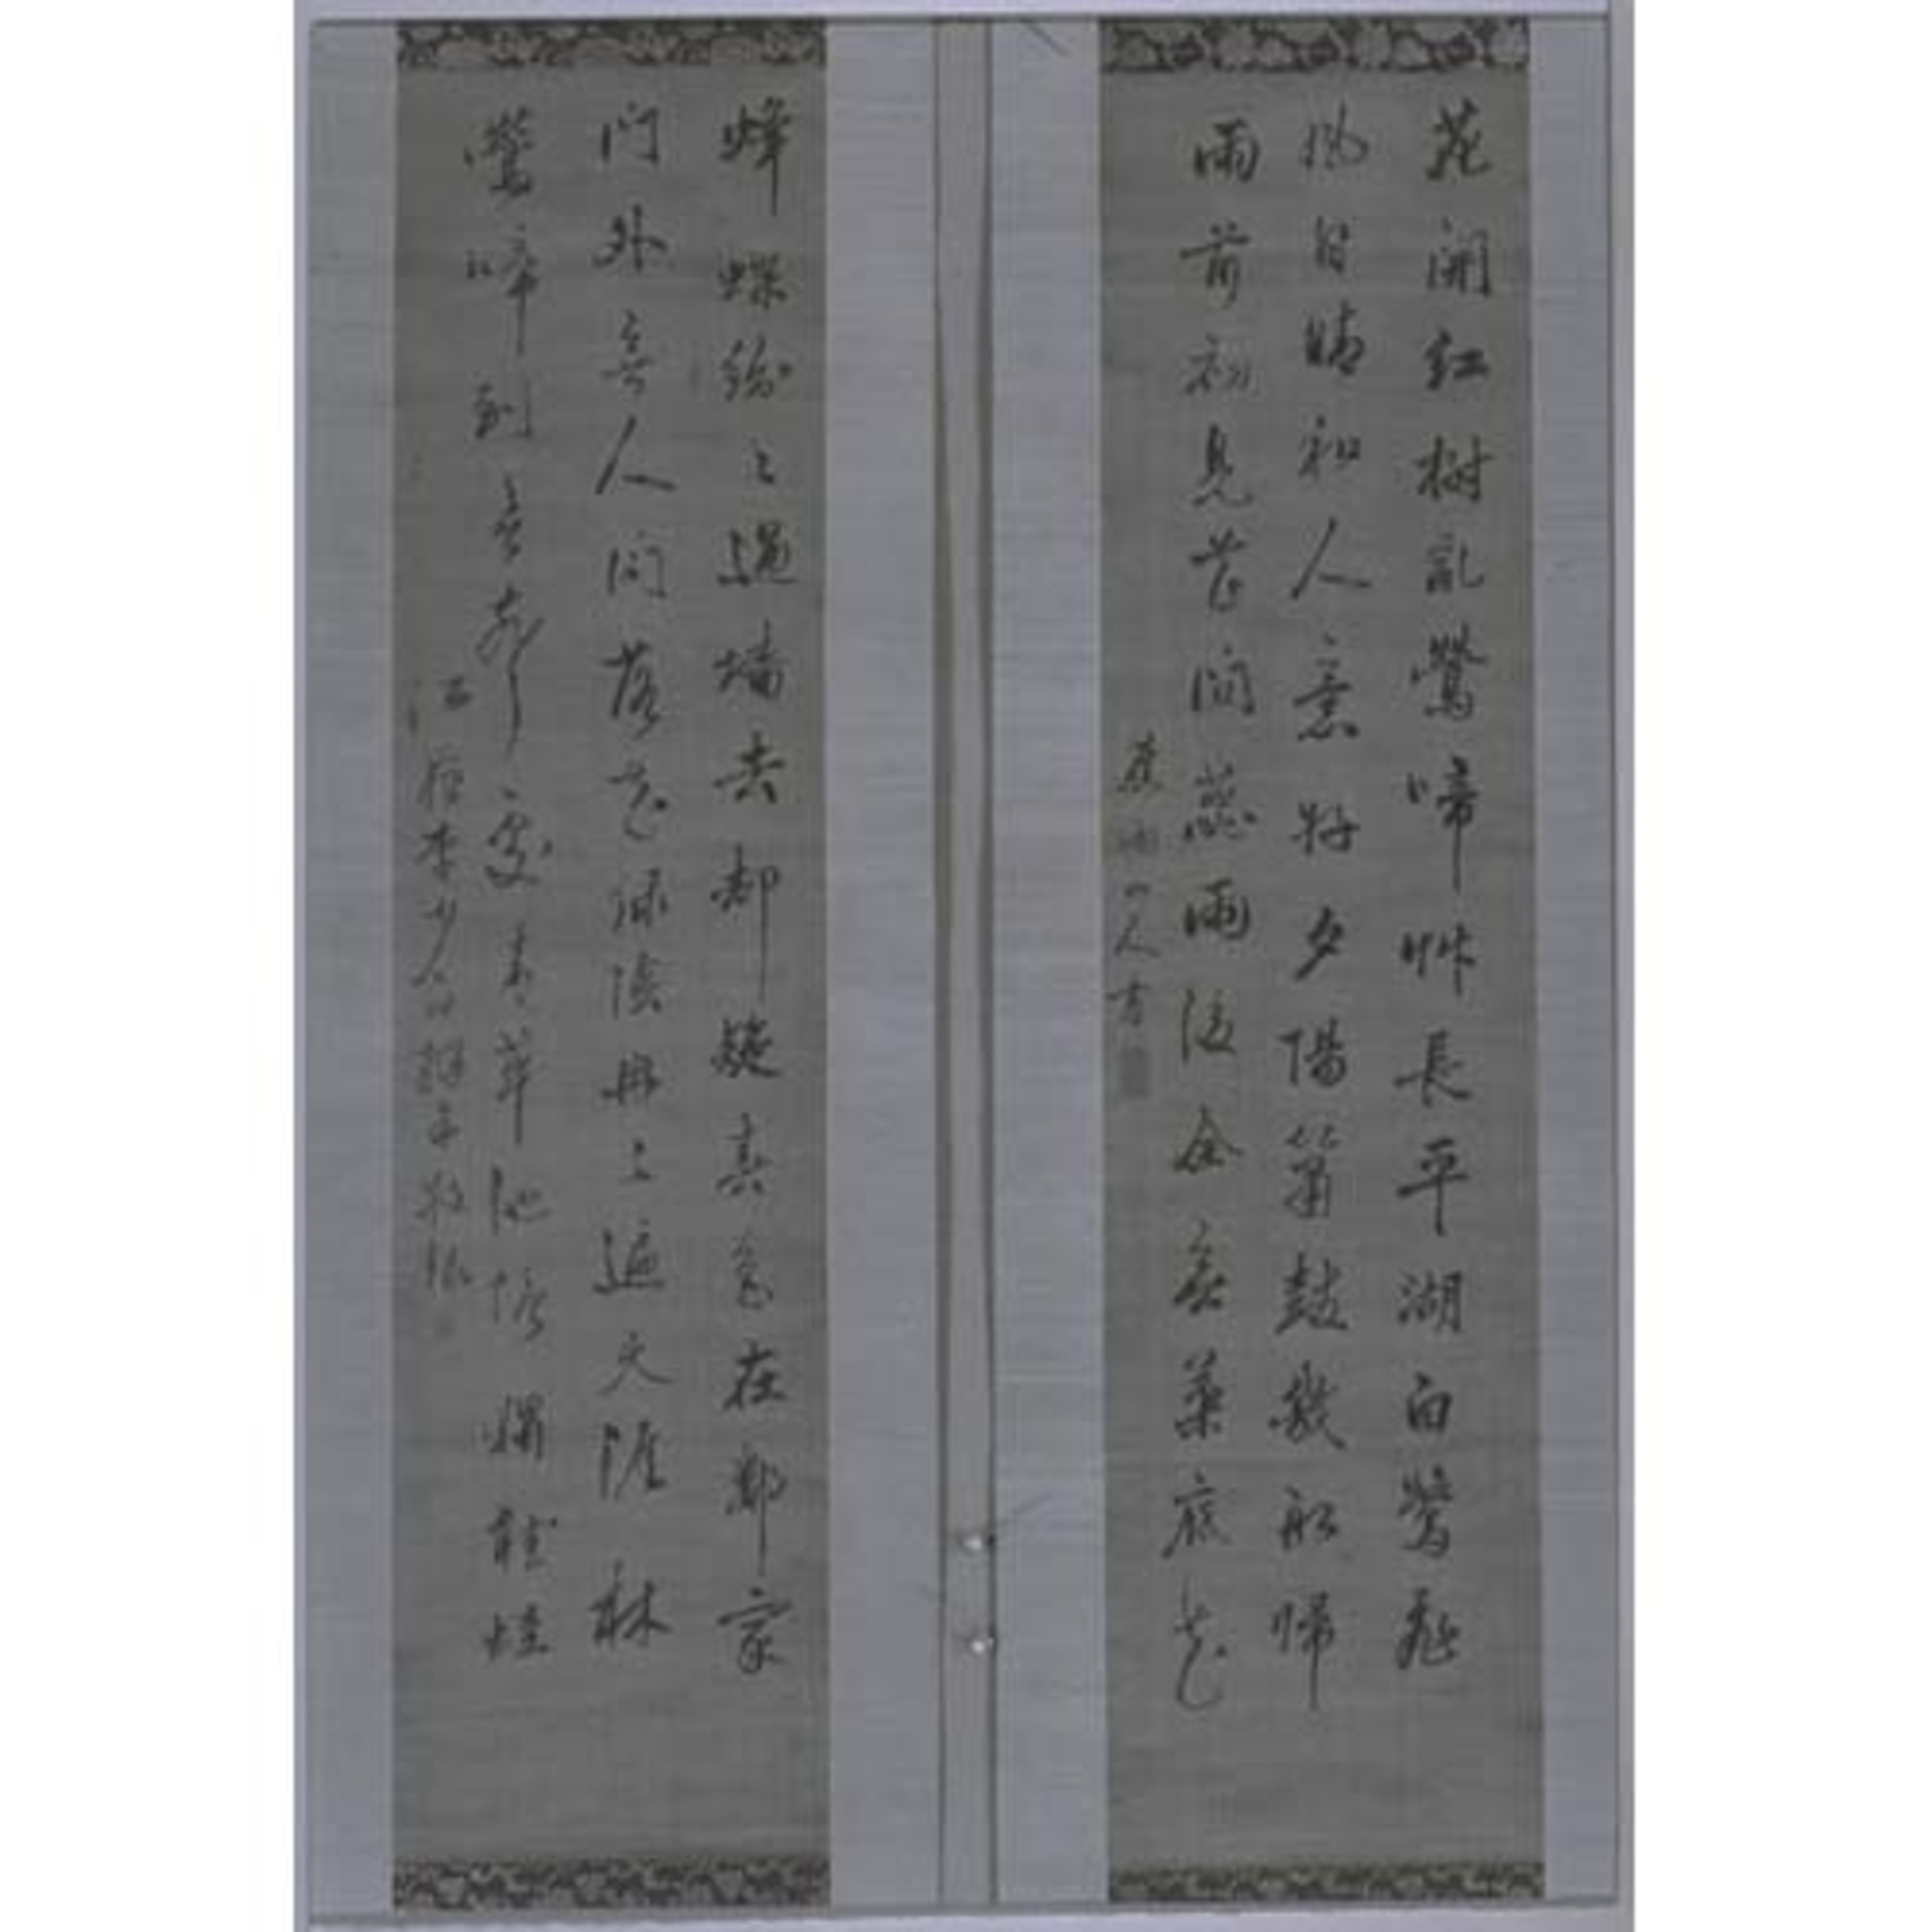 花開紅樹乱鶯啼艸長平湖白鷺飛
風日晴和人意好夕陽簫鼓幾船帰
雨前初見花間蕊雨後全無葉底花
山人書
蜂蝶紛〻過墻去却疑春色在鄰家
门外無人问落花緑陰冉〻遍天涯林
鶯啼到無声處青草池塘獨聴蛙